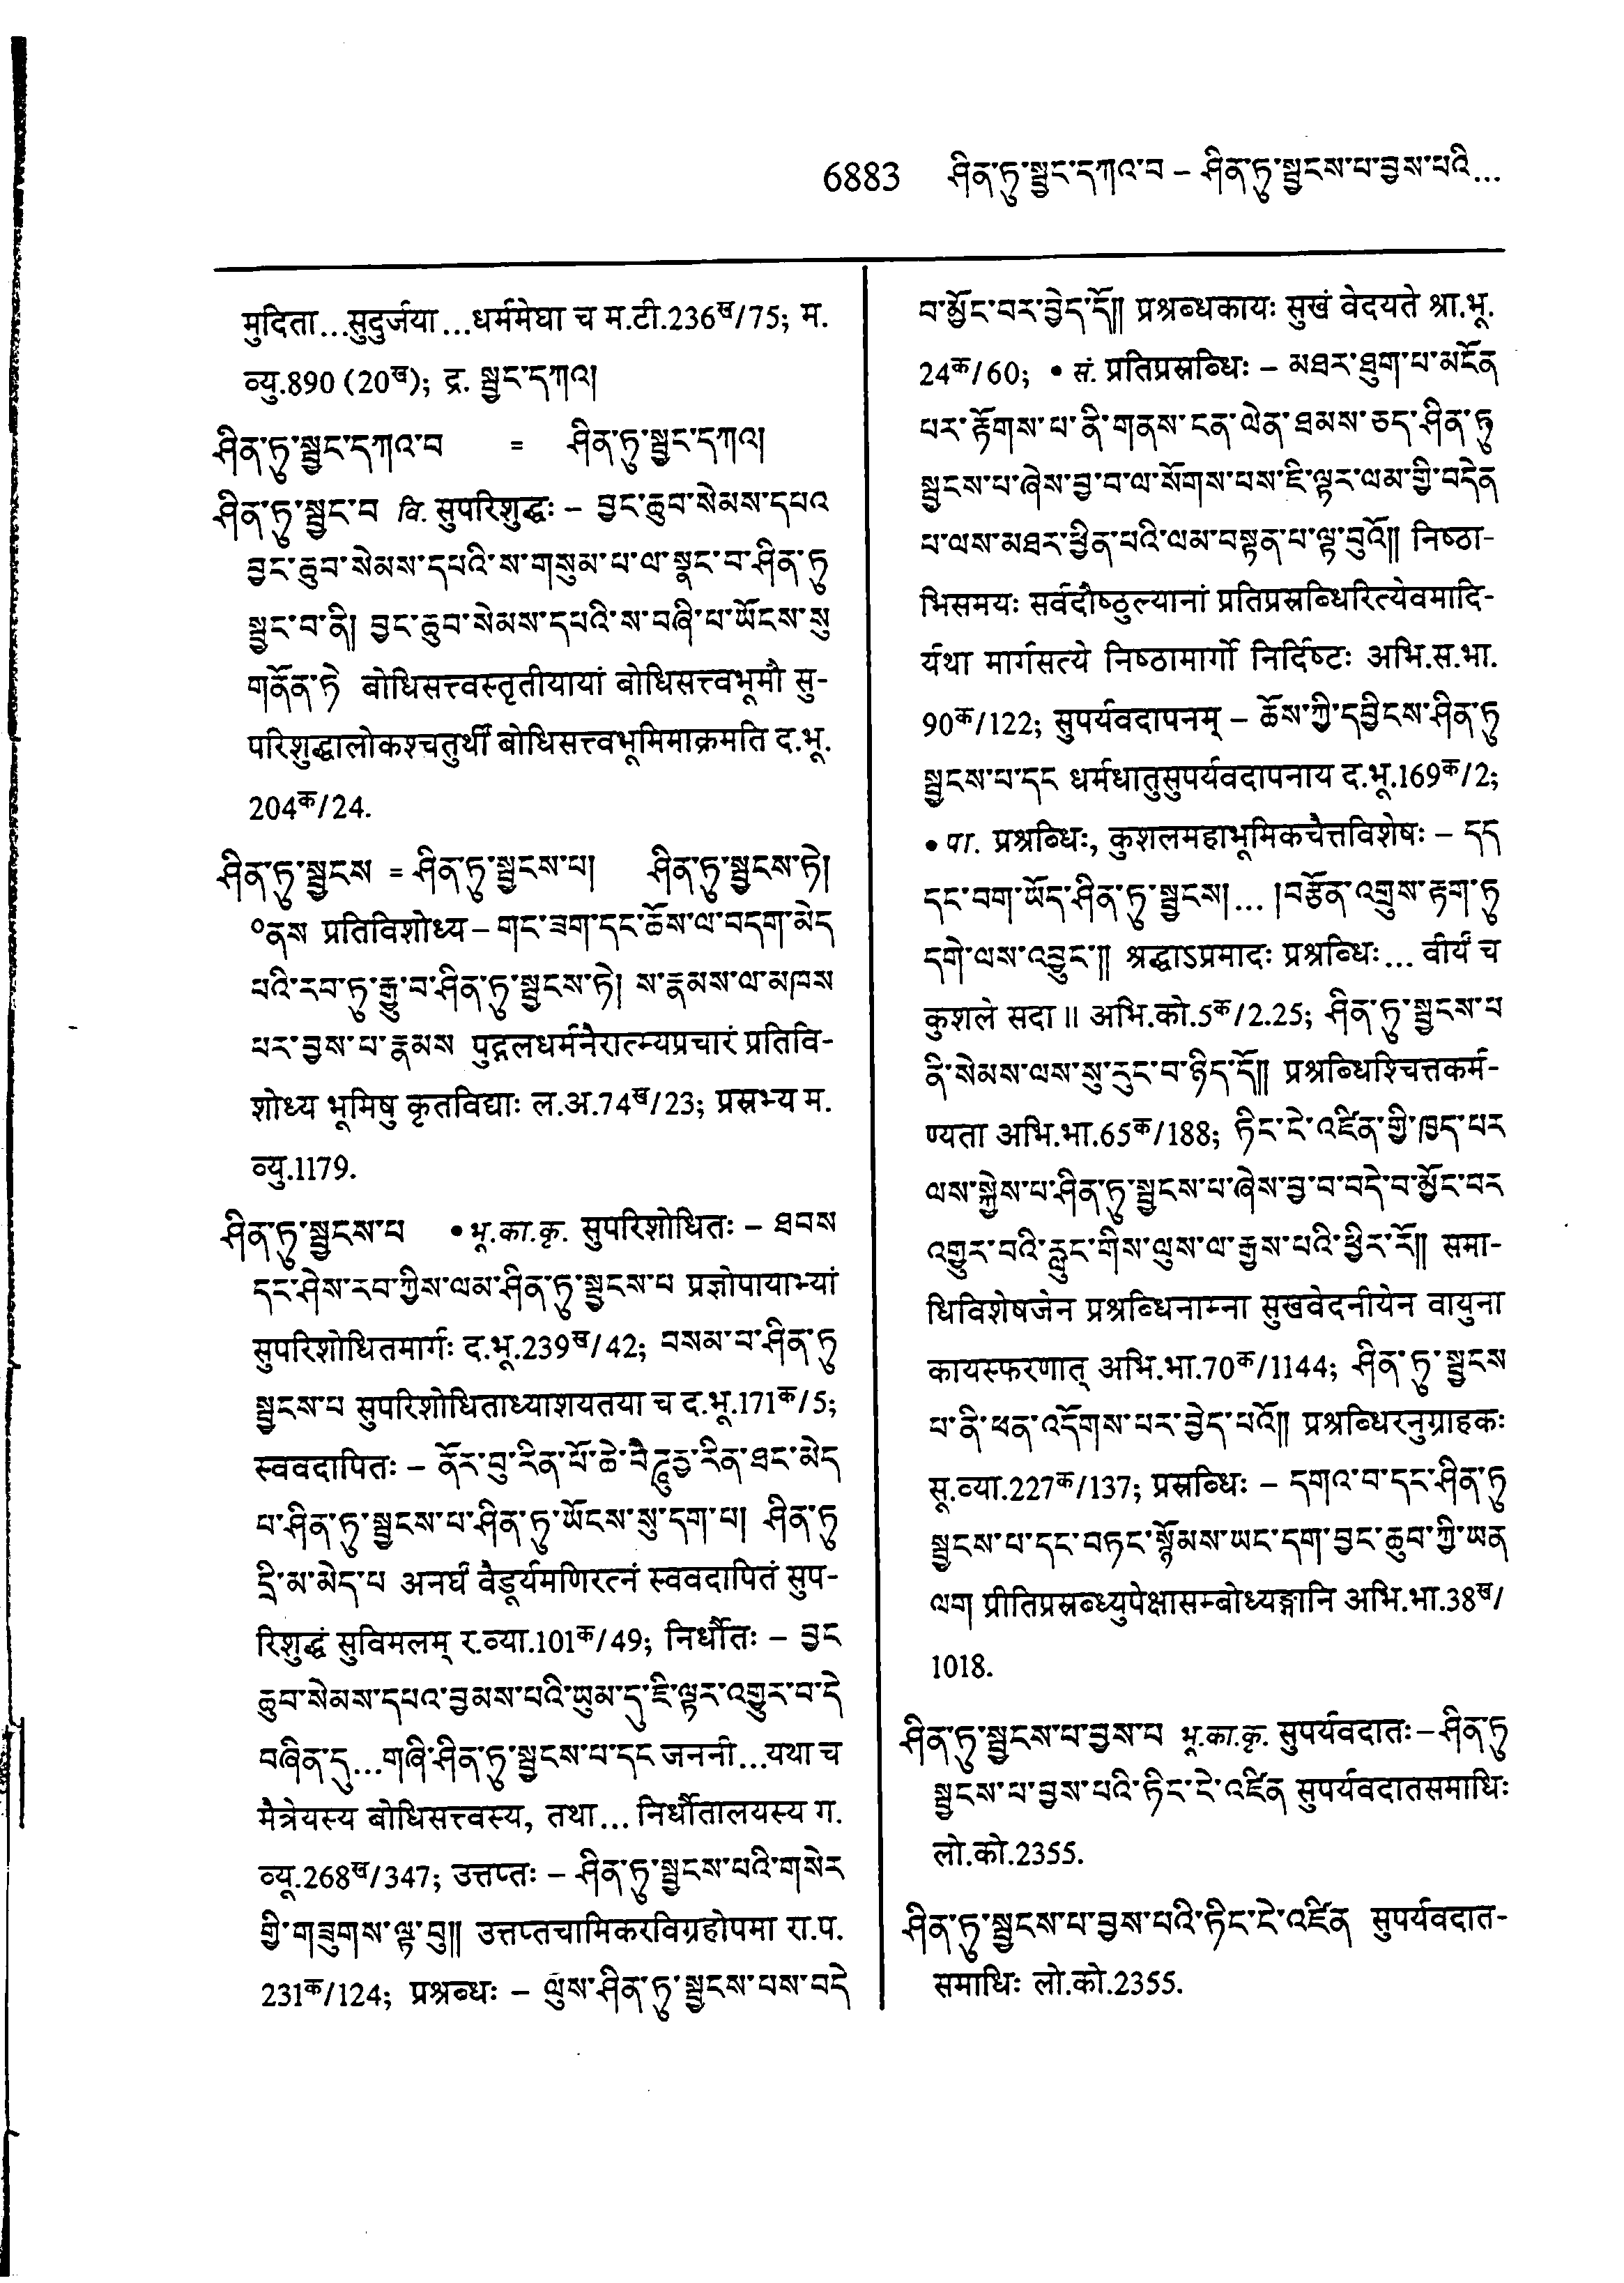 6883 ཤིན་ཏུ་སྦྱང་དཀའ་བ – ཤིན་ཏུ་སྦྱངས་པ་བྱས་པའི...
मुदिता...सुदुर्जया...धर्ममेघा च म.टी.236ख/75; म.
व्यु.890 (20ख); द्र. སྦྱང་དཀའ།
ཤིན་ཏུ་སྦྱང་དཀའ་བ = ཤིན་ཏུ་སྦྱང་དཀའ།
ཤིན་ཏུ་སྦྱང་བ वि. सुपरिशुद्धः – བྱང་ཆུབ་སེམས་དཔའ
བྱང་ཆུབ་སེམས་དཔའི་ས་གསུམ་པ་ལ་སྣང་བ་ཤིན་ཏུ
སྦྱང་བ་ནི། བྱང་ཆུབ་སེམས་དཔའི་ས་བཞི་པ་ཡོངས་སུ
གནོན་ཏེ बोधिसत्त्वस्तृतीयायां बोधिसत्त्वभूमौ सु-
परिशुद्धालोकश्चतुर्थीं बोधिसत्त्वभूमिमाक्रमति द.भू.
204क/24.
ཤིན་ཏུ་སྦྱངས = ཤིན་ཏུ་སྦྱངས་པ། ཤིན་ཏུ་སྦྱངས་ཏེ།
°ནས प्रतिविशोध्य – གང་ཟག་དང་ཆོས་ལ་བདག་མེད
པའི་རབ་ཏུ་རྒྱུ་བ་ཤིན་ཏུ་སྦྱངས་ཏེ། ས་རྣམས་ལ་མཁས
པར་བྱས་པ་རྣམས पुद्गलधर्मनैरात्म्यप्रचारं प्रतिवि-
शोध्य भूमिषु कृतविद्याः ल.अ.74ख/23; प्रस्रभ्य म.
व्यु.1179.
ཤིན་ཏུ་སྦྱངས་པ • भू.का.कृ. सुपरिशोधितः – ཐབས
དང་ཤེས་རབ་ཀྱིས་ལམ་ཤིན་ཏུ་སྦྱངས་པ प्रज्ञोपायाभ्यां
सुपरिशोधितमार्गः द.भू.239ख/42; བསམ་པ་ཤིན་ཏུ
སྦྱངས་པ सुपरिशोधिताध्याशयतया च द.भू.171क/5;
स्ववदापितः – ནོར་བུ་རིན་པོ་ཆེ་བཻ་ཌཱུརྱ་རིན་ཐང་མེད
པ་ཤིན་ཏུ་སྦྱངས་པ་ཤིན་ཏུ་ཡོངས་སུ་དག་པ། ཤིན་ཏུ
དྲི་མ་མེད་པ अनर्घं वैडूर्यमणिरत्नं स्ववदापितं सुप-
रिशुद्धं सुविमलम् र.व्या.101क/49; निर्धौतः – བྱང
ཆུབ་སེམས་དཔའ་བྱམས་པའི་ཡུམ་དུ་ཇི་ལྟར་འགྱུར་བ་དེ
བཞིན་དུ...གཞི་ཤིན་ཏུ་སྦྱངས་པ་དང जननी...यथा च
मैत्रेयस्य बोधिसत्त्वस्य, तथा... निर्धौतालयस्य ग.
व्यू.268ख/347; उत्तप्तः – ཤིན་ཏུ་སྦྱངས་པའི་གསེར
གྱི་གཟུགས་ལྟ་བུ།། उत्तप्तचामिकरविग्रहोपमा रा.प.
231क/124; प्रश्रब्धः – ལུས་ཤིན་ཏུ་སྦྱངས་པས་བདེ
བ་མྱོང་བར་བྱེད་དོ།། प्रश्रब्धकायः सुखं वेदयते श्रा.भू.
24क/60; • सं. प्रतिप्रस्रब्धिः – མཐར་ཐུག་པ་མངོན
པར་རྟོགས་པ་ནི་གནས་ངན་ལེན་ཐམས་ཅད་ཤིན་ཏུ
སྦྱངས་པ་ཞེས་བྱ་བ་ལ་སོགས་པས་ཇི་ལྟར་ལམ་གྱི་བདེན
པ་ལས་མཐར་ཕྱིན་པའི་ལམ་བསྟན་པ་ལྟ་བུའོ།། निष्ठा-
भिसमयः सर्वदौष्ठुल्यानां प्रतिप्रस्रब्धिरित्येवमादि-
र्यथा मार्गसत्ये निष्ठामार्गो निर्दिष्टः अभि.स.भा.
90क/122; सुपर्यवदापनम् – ཆོས་ཀྱི་དབྱིངས་ཤིན་ཏུ
སྦྱངས་པ་དང धर्मधातुसुपर्यवदापनाय द.भू.169क/2;
• पा. प्रश्रब्धिः, कुशलमहाभूमिकचैत्तविशेषः – དད
དང་བག་ཡོད་ཤིན་ཏུ་སྦྱངས།... །བརྩོན་འགྲུས་རྟག་ཏུ
དགེ་ལས་འབྱུང་།། श्रद्धाऽप्रमादः प्रश्रब्धिः... वीर्यं च
कुशले सदा ।। अभि.को.5क/2.25; ཤིན་ཏུ་སྦྱངས་པ
ནི་སེམས་ལས་སུ་རུང་བ་ཉིད་དོ།། प्रश्रब्धिश्चित्तकर्म-
ण्यता अभि.भा.65क/188; ཏིང་ངེ་འཛིན་གྱི་ཁྱད་པར
ལས་སྐྱེས་པ་ཤིན་ཏུ་སྦྱངས་པ་ཞེས་བྱ་བ་བདེ་བ་མྱོང་བར
འགྱུར་བའི་རླུང་གིས་ལུས་ལ་རྒྱས་པའི་ཕྱིར་རོ།། समा-
धिविशेषजेन प्रश्रब्धिनाम्ना सुखवेदनीयेन वायुना
कायस्फरणात् अभि.भा.70क/1144; ཤིན་ཏུ་སྦྱངས
པ་ནི་ཕན་འདོགས་པར་བྱེད་པའོ།། प्रश्रब्धिरनुग्राहकः
सू.व्या.227क/137; प्रस्रब्धिः – དགའ་བ་དང་ཤིན་ཏུ
སྦྱངས་པ་དང་བཏང་སྙོམས་ཡང་དག་བྱང་ཆུབ་ཀྱི་ཡན
ལག प्रीतिप्रस्रब्ध्युपेक्षासम्बोध्यङ्गानि अभि.भा.38ख/
1018.
ཤིན་ཏུ་སྦྱངས་པ་བྱས་པ भू.का.कृ. सुपर्यवदातः – ཤིན་ཏུ
སྦྱངས་པ་བྱས་པའི་ཏིང་ངེ་འཛིན सुपर्यवदातसमाधिः
लो.को.2355.
ཤིན་ཏུ་སྦྱངས་པ་བྱས་པའི་ཏིང་ངེ་འཛིན सुपर्यवदात-
समाधिः लो.को.2355.